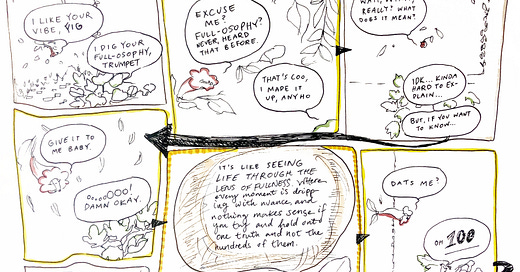 I LIKE YOUR
VIBE, VIG
I DIG YOUR
FULL-OSOPHY,
TRUMPET
EXCUSE
ME?
FULL-OSOPHY?
NEVER HEARD
THAT BEFORE.
THAT'S COO,
I MADE IT
UP, ANYHO
REALLY? WHAT
DOES IT MEAN?
IDK... KINDA
HARD TO EX-
PLAIN...
BUT, IF YOU WANT
TO KNOW...
GIVE IT TO
ME BABY.
OOOOOOO!
DAMN OKAY.
IT'S LIKE SEEING
LIFE THROUGH THE
LENS OF FULLNESS. Where
every moment is dripp
ing with nuance, and
nothing makes sense if
you try and hold onto
one truth and not the
hundreds of them.
DATS ME?
OH 100